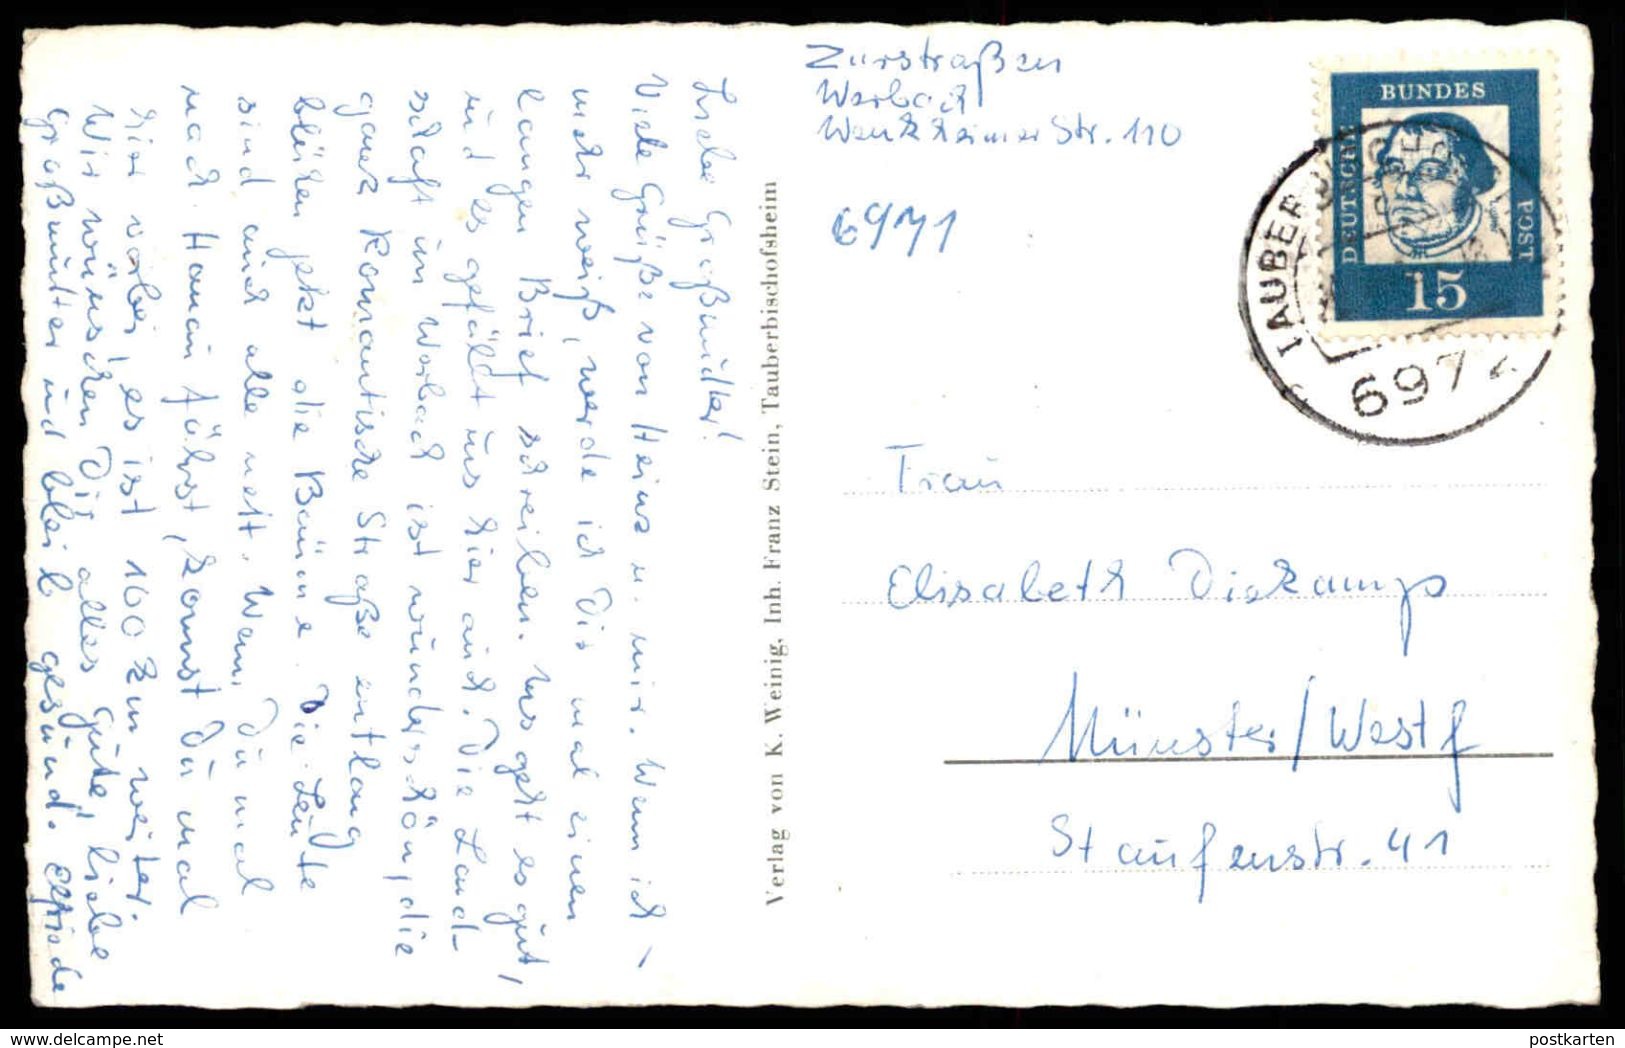 Zurstraßen
Werbach
Wenkheimer Str. 110
6971
BUNDES
POST
DEUTSCHE
15
TAUBERBISCHOFSHEIM
6972
Liebe Großmutter!
Viele Grüße von Heinz u. mir. Wenn ich
mehr weiß, werde ich Dir mal einen
langen Brief schreiben. Uns geht es gut,
und es gefällt uns hier auch. Die Land-
schaft um Werbach ist wunderschön, die
ganze Romantische Straße entlang
blühen jetzt die Bäume. Die Leute
sind auch alle nett. Wenn Du mal
nach Hamm fährst, kommst Du mal
hier vorbei, es ist 100 km weiter.
Wir wünschen Dir alles Gute, liebe
Großmutter und bleib gesund. Elfriede
Verlag von K. Weinig, Inh. Franz Stein, Tauberbischofsheim
Frau
Elisabeth Diekamp
Münster/Westf
Staufenstr. 41
postkarten